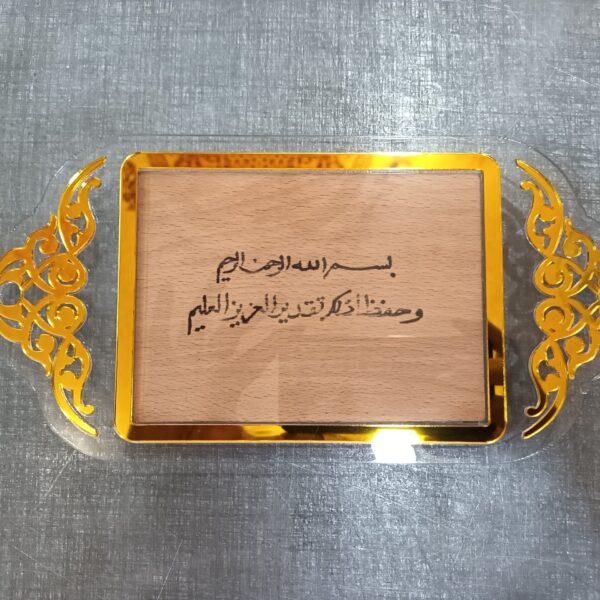 بسم الله الرحمن الرحيم
وحفظا ذلك تقدير العزيز العليم